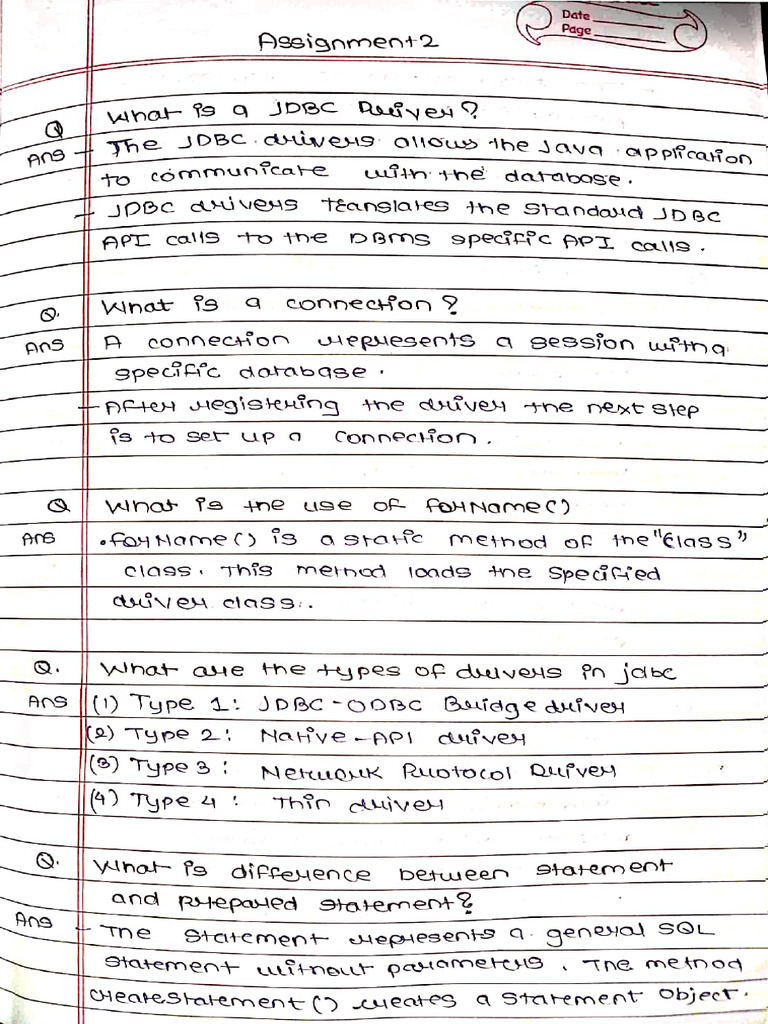 Date
Page
Assignment 2
Q What is a JDBC Driver?
Ans - The JDBC drivers allows the Java application
to communicate with the database.
- JDBC drivers translates the standard JDBC
API calls to the DBMS specific API calls.
Q. What is a connection?
Ans A connection represents a session with a
specific database.
- After registering the driver the next step
is to set up a connection.
Q What is the use of forName()
Ans .forName() is a static method of the "Class"
class. This method loads the specified
driver class.
Q. What are the types of drivers in jdbc
Ans (1) Type 1: JDBC-ODBC Bridge driver
(2) Type 2: Native-API driver
(3) Type 3: Network Protocol Driver
(4) Type 4: Thin driver
Q. What is difference between statement
and prepared statement?
Ans - The statement represents a general SQL
statement without parameters. The method
createstatement() creates a statement object.